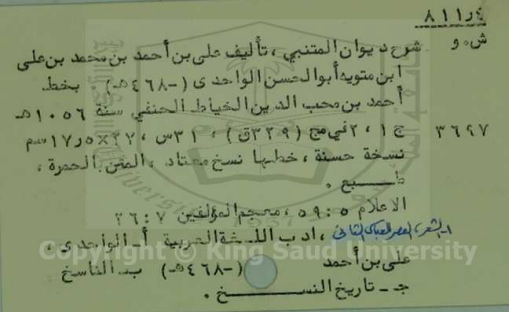 ٨١١ر٤
ش٠و شرح ديوان المتنبي، تأليف على بن أحمد بن محمد بن على
ابن متويه أبوالحسن الواحدى (-٤٦٨هـ) بخط
أحمد بن محب الدين الخياط الحنفي سنة ١٠٥٦هـ
٣٦٩٧ ج١، ٢في مج (٣٢٩ق)، ٣١س، ٢٧×١٧ر٥سم
نسخة حسنة، خطها نسخ معتاد، المتن بالحمرة،
طبع.
الاعلام ٥:٥٩، معجم المؤلفين ٧:٢٦
١-الشعر، العصر العباسي الثاني، ادب اللغة العربية أ-الواحدى،
على بن أحمد (-٤٦٨هـ) ب-الناسخ
جـ-تاريخ النسخ.
Copyright © King Saud University